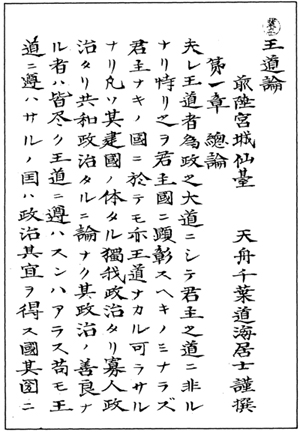 王道論
前陸宮城仙臺　天舟千葉道海居士謹撰
第一章　總論
夫レ王道者為政之大道ニシテ君主之道ニ非ル
ナリ特リ之ヲ君主國ニ顕彰スヘキノミナラズ
君主ナキノ國ニ於テモ亦王道ナカル可ラサル
ナリ凡ソ其建國ノ体タル獨裁政治タリ寡人政
治タリ共和政治タルニ論ナク其政治ノ善良ナ
ル者ハ皆尽ク王道ニ遵ハスンハアラス苟モ王
道ニ遵ハサルノ国ハ政治其宜ヲ得ス國其國ニ